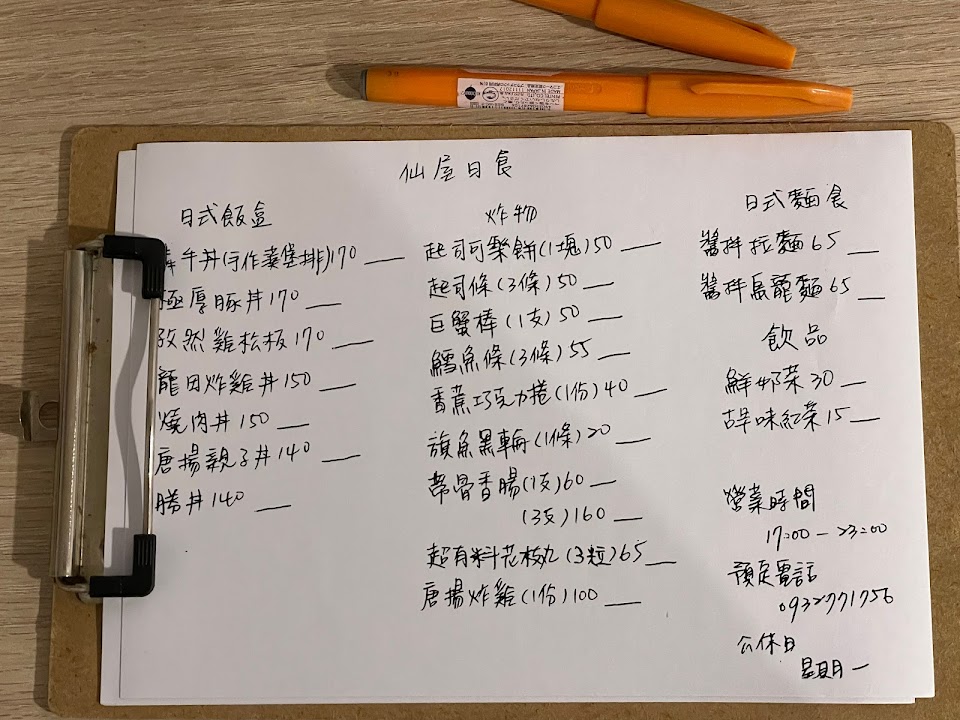 仙屋日食
日式飯盒
牛丼(手作漢堡排)170
極厚豚丼170
孜然雞松板170
龍田炸雞丼150
燒肉丼150
唐揚親子丼140
勝丼140
炸物
起司可樂餅(1塊)50
起司條(3條)50
巨蟹棒(1支)50
鱈魚條(3條)55
香蕉巧克力捲(1份)40
旗魚黑輪(1條)20
帶骨香腸(1支)60
(3支)160
超有料花枝丸(3粒)65
唐揚炸雞(1份)100
日式麵食
醬拌拉麵65
醬拌烏龍麵65
飲品
鮮奶茶30
古早味紅茶15
營業時間
17:00-23:00
預定電話
0932771756
公休日
星期一
MADE IN JAPAN